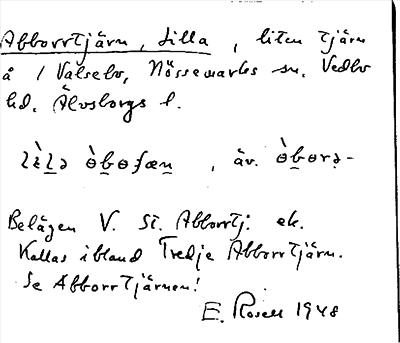 Abborrtjärn, Lilla, liten tjärn
å / Valsebo, Nössemarks sn. Vedbo
hd. Älvsborgs l.
lɩ̀lə ɵ̀bɵʃæn, äv. ɵ̀bɵrə-
Belägen V. St. Abborrtj. ek.
Kallas ibland Tredje Abborrtjärn.
Se Abborrtjärnen!
E. Rosell 1948